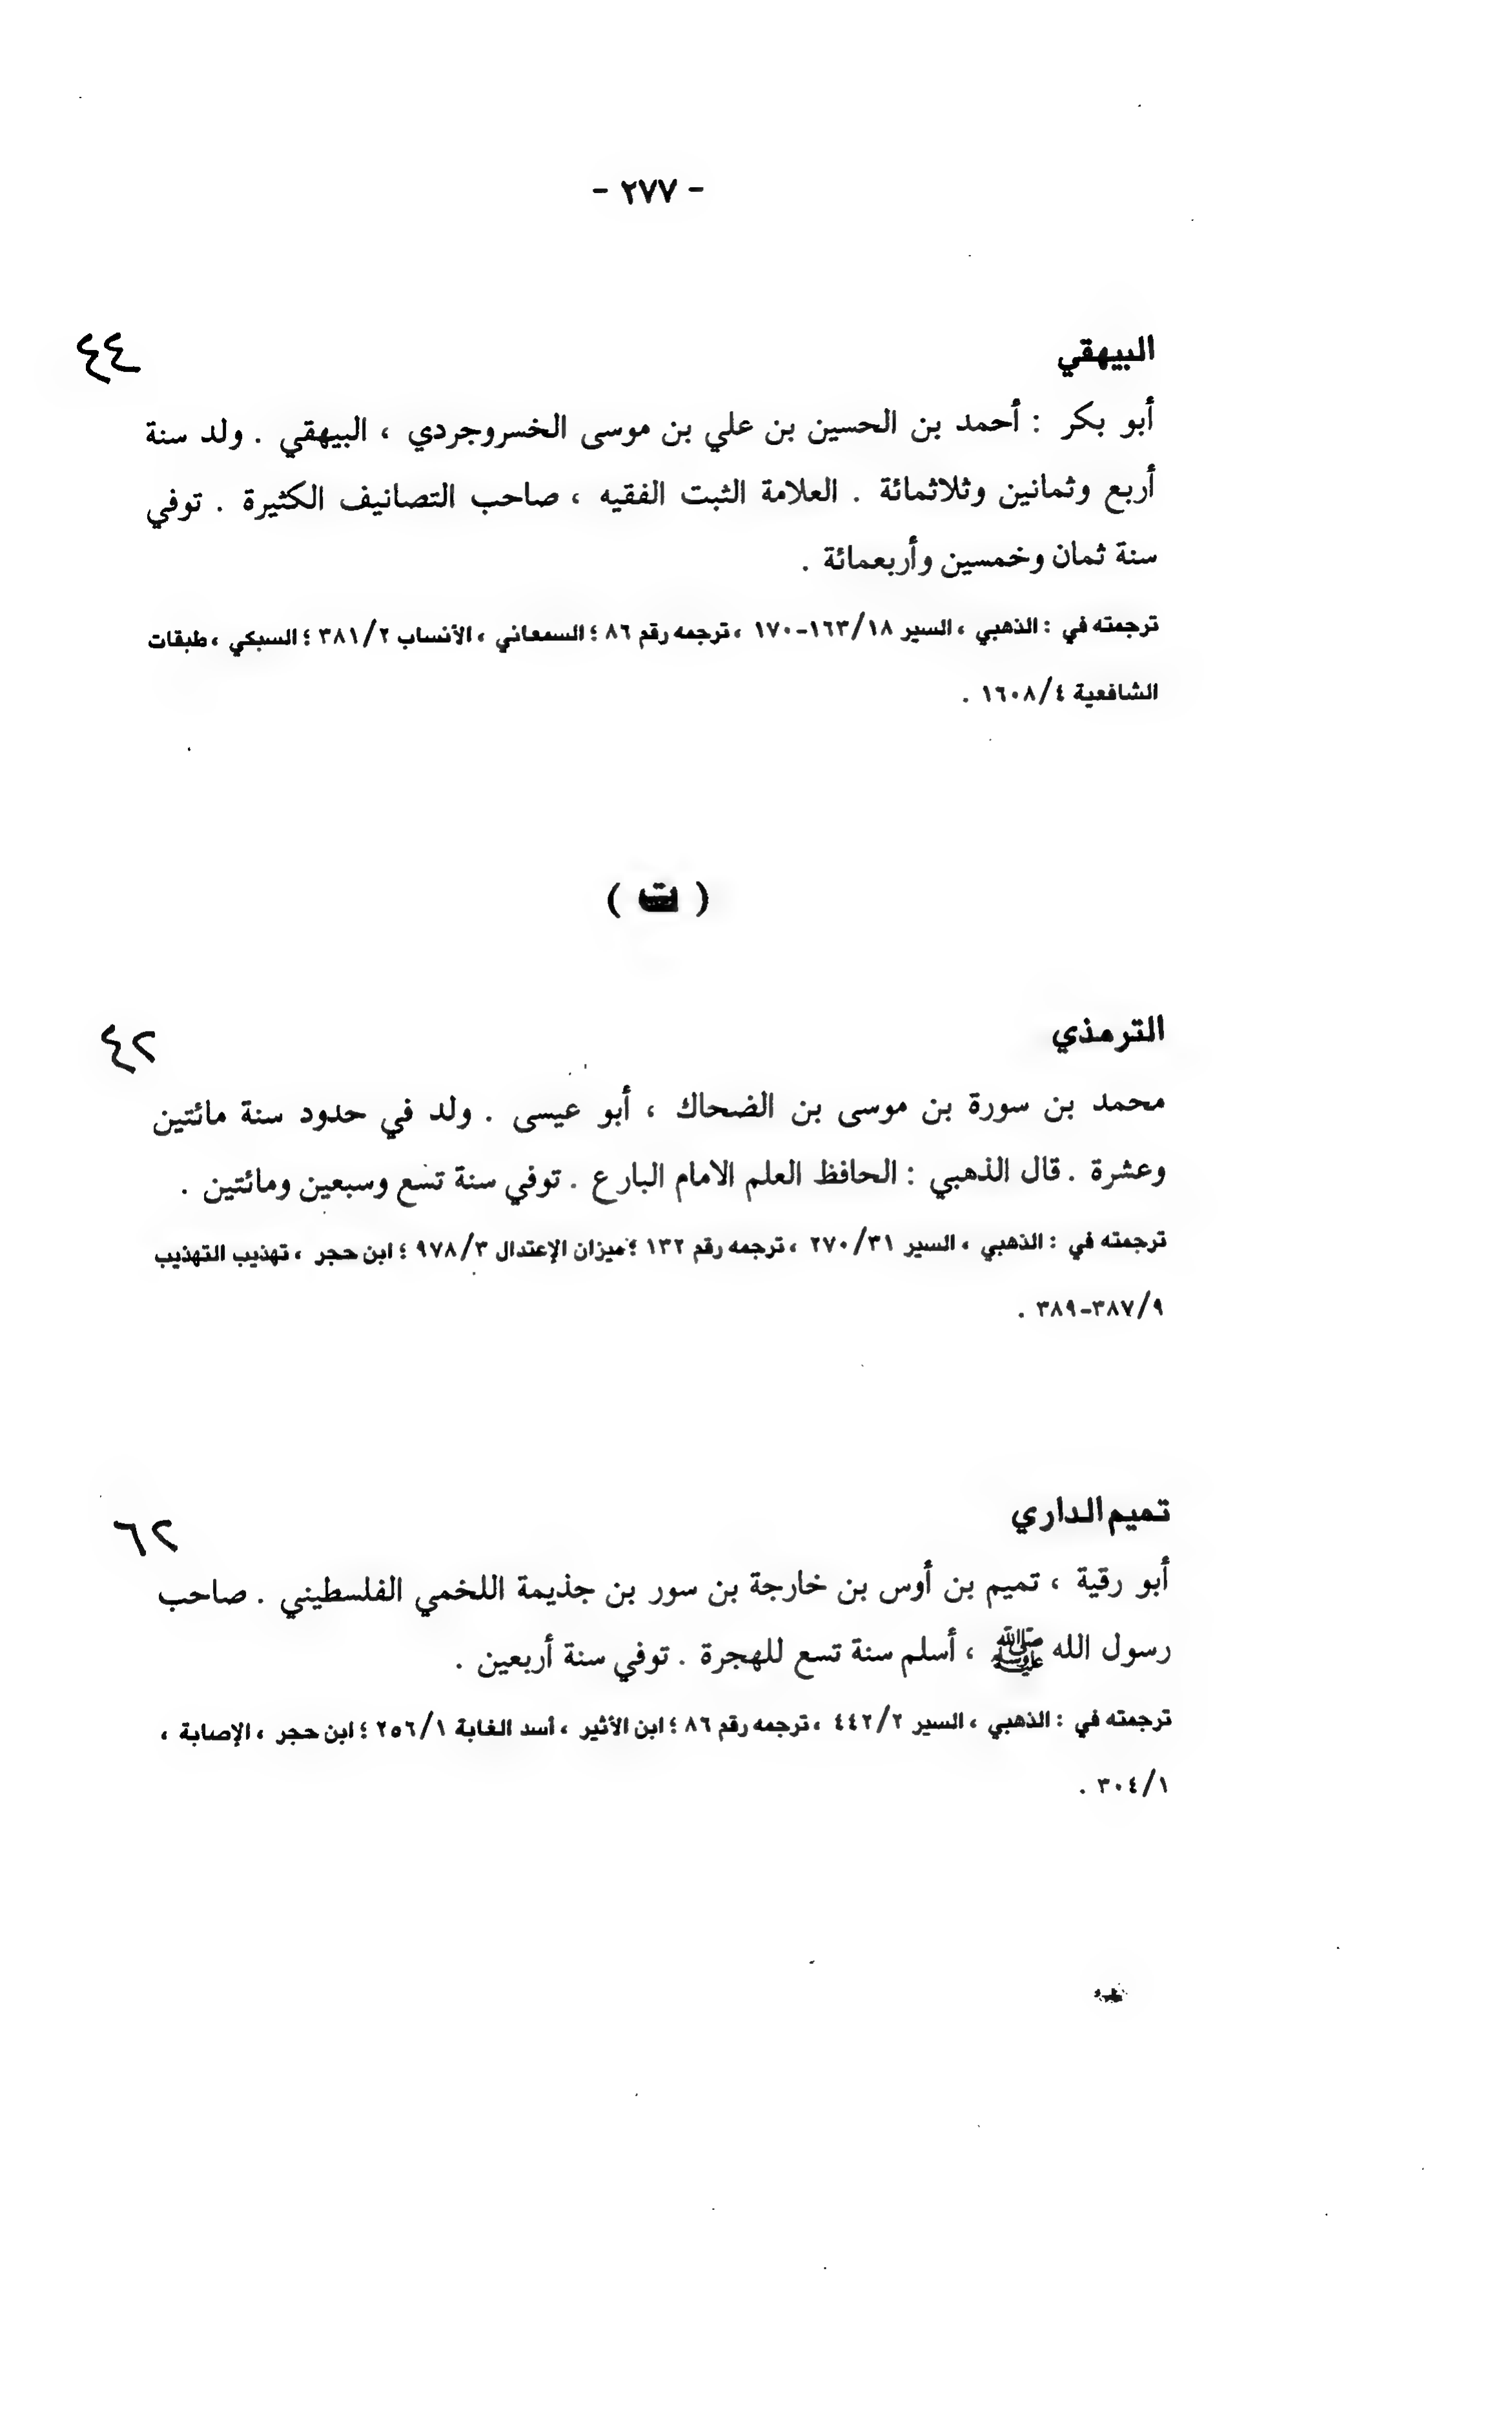 - ٢٧٧ -
البيهقي ٤٤
أبو بكر : أحمد بن الحسين بن علي بن موسى الخسروجردي ، البيهقي . ولد سنة
أربع وثمانين وثلاثمائة . العلامة الثبت الفقيه ، صاحب التصانيف الكثيرة . توفي
سنة ثمان وخمسين وأربعمائة .
ترجمته في : الذهبي ، السير ١٦٣/١٨-١٧٠ ، ترجمه رقم ٨٦ ؛ السمعاني ، الأنساب ٣٨١/٢ ؛ السبكي ، طبقات
الشافعية ١٦٠٨/٤ .
( ت )
الترمذي ٤٢
محمد بن سورة بن موسى بن الضحاك ، أبو عيسى . ولد في حدود سنة مائتين
وعشرة . قال الذهبي : الحافظ العلم الامام البارع . توفي سنة تسع وسبعين ومائتين .
ترجمته في : الذهبي ، السير ٢٧٠/٣١ ، ترجمه رقم ١٣٢ ؛ ميزان الإعتدال ٩٧٨/٣ ؛ ابن حجر ، تهذيب التهذيب
٣٨٧/٩-٣٨٩ .
تميم الداري ٦٢
أبو رقية ، تميم بن أوس بن خارجة بن سور بن جذيمة اللخمي الفلسطيني . صاحب
رسول الله ﷺ ، أسلم سنة تسع للهجرة . توفي سنة أربعين .
ترجمته في : الذهبي ، السير ٤٤٢/٢ ، ترجمه رقم ٨٦ ؛ ابن الأثير ، أسد الغابة ٢٥٦/١ ؛ ابن حجر ، الإصابة ،
٣٠٤/١ .